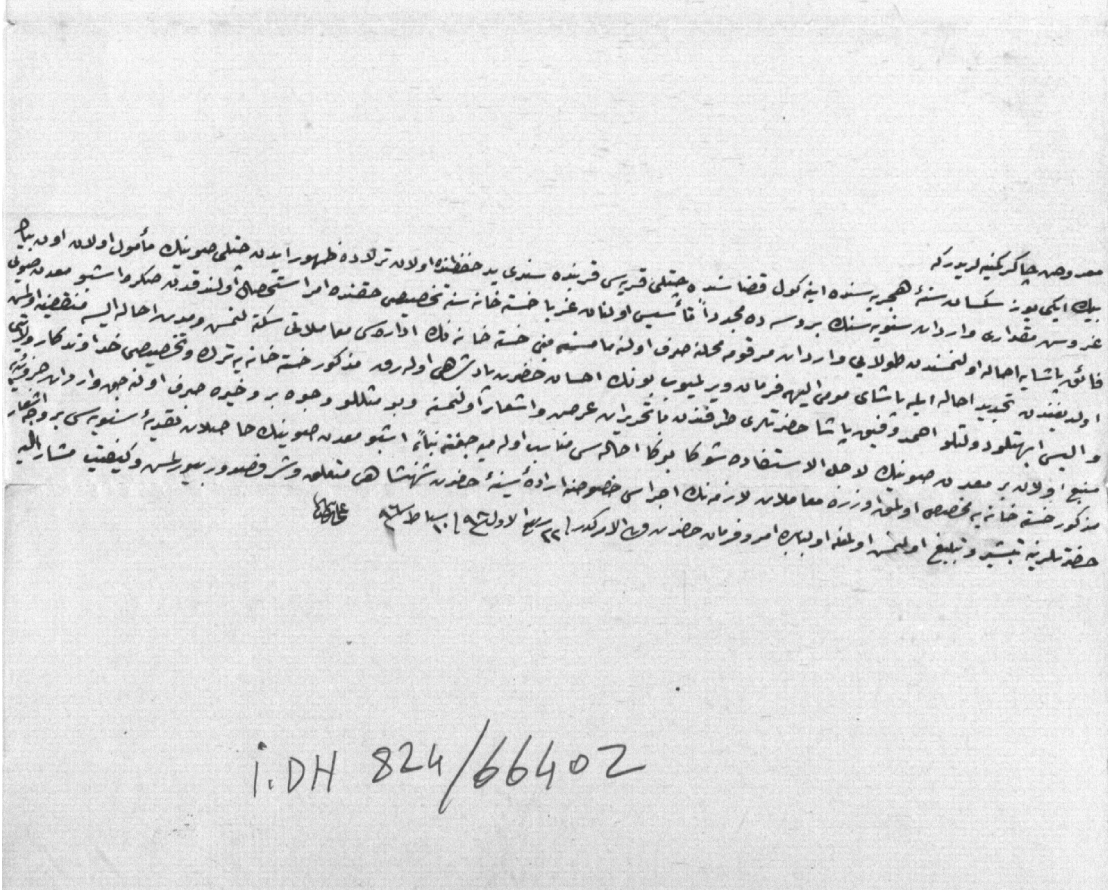 معروض چاكر كمينه لريدر كه
بيك ايكى يوز سكسان سنهٔ هجريه سنده اينه كول قضاسنده چتلى قريه سى قربنده سندى يد حفظنده اولان ترلاده ظهور ايدن چتلى صوينك مأمول اولان اون بيك
غروش مقدارى واردات سنويه سنك بروسه ده مجدداً تأسيس اولنان غربا خسته خانه سنه تخصيصى حقنده امر استحصال اولندقدن صكره اشبو معدن صويى
فائق پاشايه احاله اولنمسندن طولايى واردات مرقومه محلنه صرف اوله مامسنه مبنى خسته خانه نك اداره سى معاملاتى سكته لنمش ومدت احاله ايسه منقضيه اولمش
اولديغندن تجديد احاله ايله پاشاى مومى اليه فرمان ويرلميوب بونك احسان حضرت پادشاهى اوله رق مذكور خسته خانه يه ترك وتخصيصى خداوندكار ولايتى
واليسى ابهتلو دولتلو احمد وفيق پاشا حضرتلرى طرفندن با تحريرات عرض واشعار اولنمش وبو مثللو وجوه بر وخيره صرف اوله جق واردات خزينه
منبع اولان بر معدن صوينك لاجل الاستفاده شوكا بوكا احاله سى مناسب اوله ميه جغنه بناءً اشبو معدن صوينك حاصلات نقديهٔ سنويه سى بر وجه اشعار
مذكور خسته خانه يه تخصيص اولنمق اوزره معاملات لازمه نك اجراسى خصوصنه ارادهٔ سنيهٔ حضرت شهنشاهى متعلق وشرفصدور بيورلمش وكيفيت مشار اليه
حضرتلرينه تبشير وتبليغ اولنمش اولمغله اولبابده امر وفرمان حضرت من له الامركدر ٢٢ ربيع الاول ٩٨ ١٠ شباط ٩٦
İ.DH 824/66402